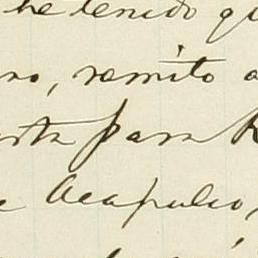 he tenido qu
no, remito a
rta para R
Acapulco,